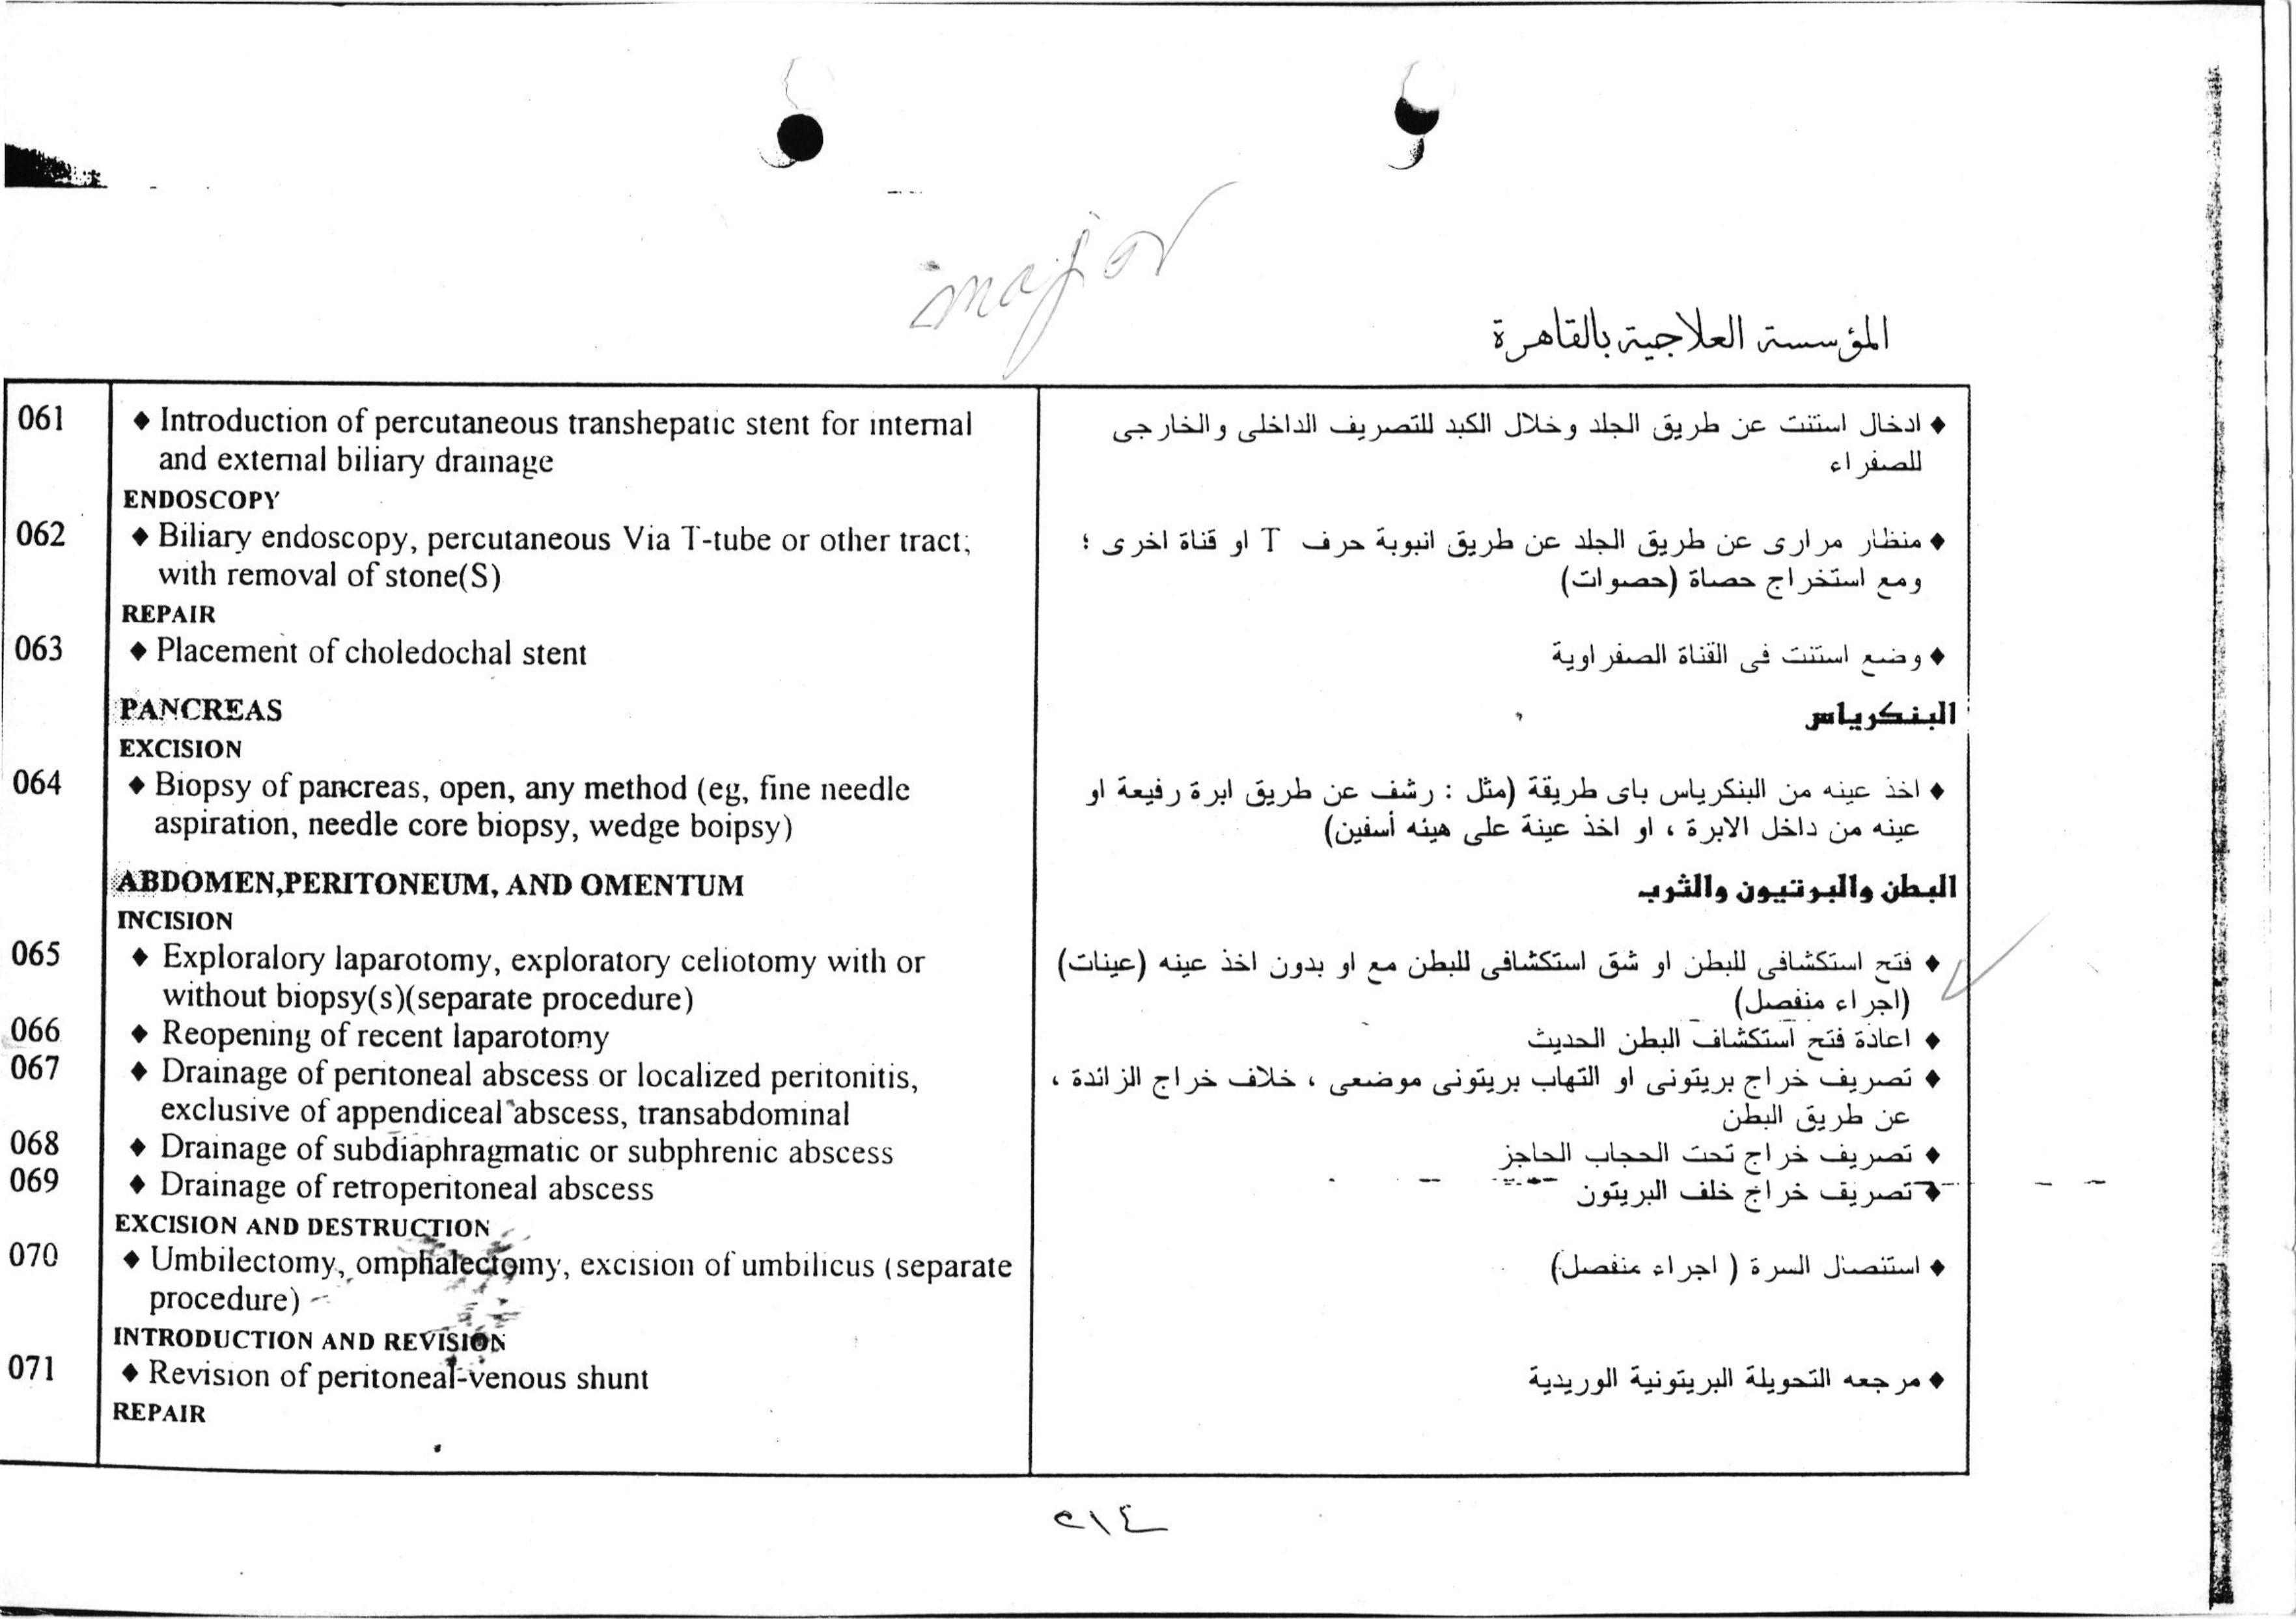 major
المؤسسة العلاجية بالقاهرة
061 ♦ Introduction of percutaneous transhepatic stent for internal
and external biliary drainage
♦ ادخال استنت عن طريق الجلد وخلال الكبد للتصريف الداخلى والخارجى
للصفراء
ENDOSCOPY
062 ♦ Biliary endoscopy, percutaneous Via T-tube or other tract;
with removal of stone(S)
♦ منظار مرارى عن طريق الجلد عن طريق انبوبة حرف T او قناة اخرى ؛
ومع استخراج حصاة (حصوات)
REPAIR
063 ♦ Placement of choledochal stent
♦ وضع استنت فى القناة الصفراوية
PANCREAS
البنكرياس
EXCISION
064 ♦ Biopsy of pancreas, open, any method (eg, fine needle
aspiration, needle core biopsy, wedge boipsy)
♦ اخذ عينه من البنكرياس باى طريقة (مثل : رشف عن طريق ابرة رفيعة او
عينه من داخل الابرة ، او اخذ عينة على هيئه أسفين)
ABDOMEN,PERITONEUM, AND OMENTUM
البطن والبرتيون والثرب
INCISION
065 ♦ Exploralory laparotomy, exploratory celiotomy with or
without biopsy(s)(separate procedure)
♦ فتح استكشافى للبطن او شق استكشافى للبطن مع او بدون اخذ عينه (عينات)
(اجراء منفصل)
066 ♦ Reopening of recent laparotomy
♦ اعادة فتح استكشاف البطن الحديث
067 ♦ Drainage of peritoneal abscess or localized peritonitis,
exclusive of appendiceal abscess, transabdominal
♦ تصريف خراج بريتونى او التهاب بريتونى موضعى ، خلاف خراج الزائدة ،
عن طريق البطن
068 ♦ Drainage of subdiaphragmatic or subphrenic abscess
♦ تصريف خراج تحت الحجاب الحاجز
069 ♦ Drainage of retroperitoneal abscess
♦ تصريف خراج خلف البريتون
EXCISION AND DESTRUCTION
070 ♦ Umbilectomy, omphalectomy, excision of umbilicus (separate
procedure)
♦ استنصال السرة ( اجراء منفصل)
INTRODUCTION AND REVISION
071 ♦ Revision of peritoneal-venous shunt
♦ مرجعه التحويلة البريتونية الوريدية
REPAIR
٢١٤